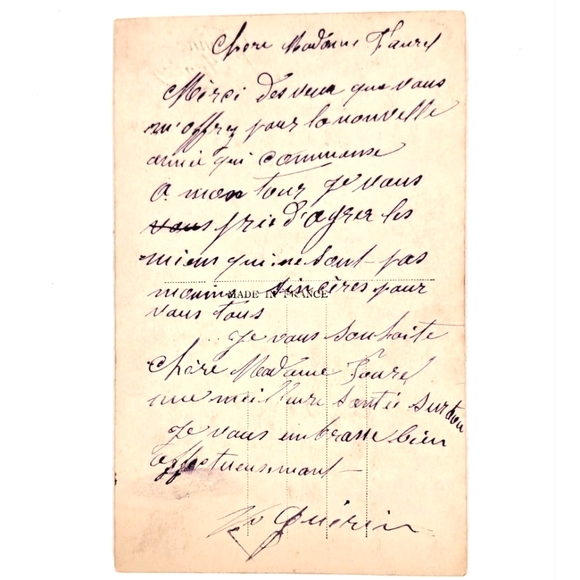 Chère Madame Faurel
Merci des veux que vous
m'offrez pour la nouvelle
année qui commanse
A mon tour Je vous
vous prie d'agrer les
miens qui ne sont pas
moins sincères pour
MADE IN FRANCE
vous tous
Je vous souhaite
chère Madame Faurel
une meilleure santée surtou
Je vous embrasse bien
affectueusemant
Guérin